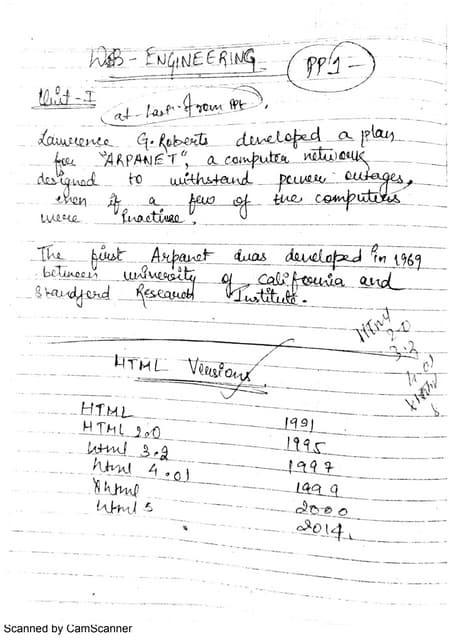 WEB - ENGINEERING
PP1 -
Unit - I
at - last - from PPt.
Lawrence G. Roberts developed a plan
for "ARPANET", a computer network
designed to withstand power outages,
even if a few of the computers
were inactive.
The first Arpanet was developed in 1969
between university of california and
Standford Research Institute.
2.0
3.2
4.01
HTML Versions.
HTML 1991
HTML 2.0 1995
html 3.2 1997
html 4.01 1999
Xhtml 2000
html 5 2014.
Scanned by CamScanner